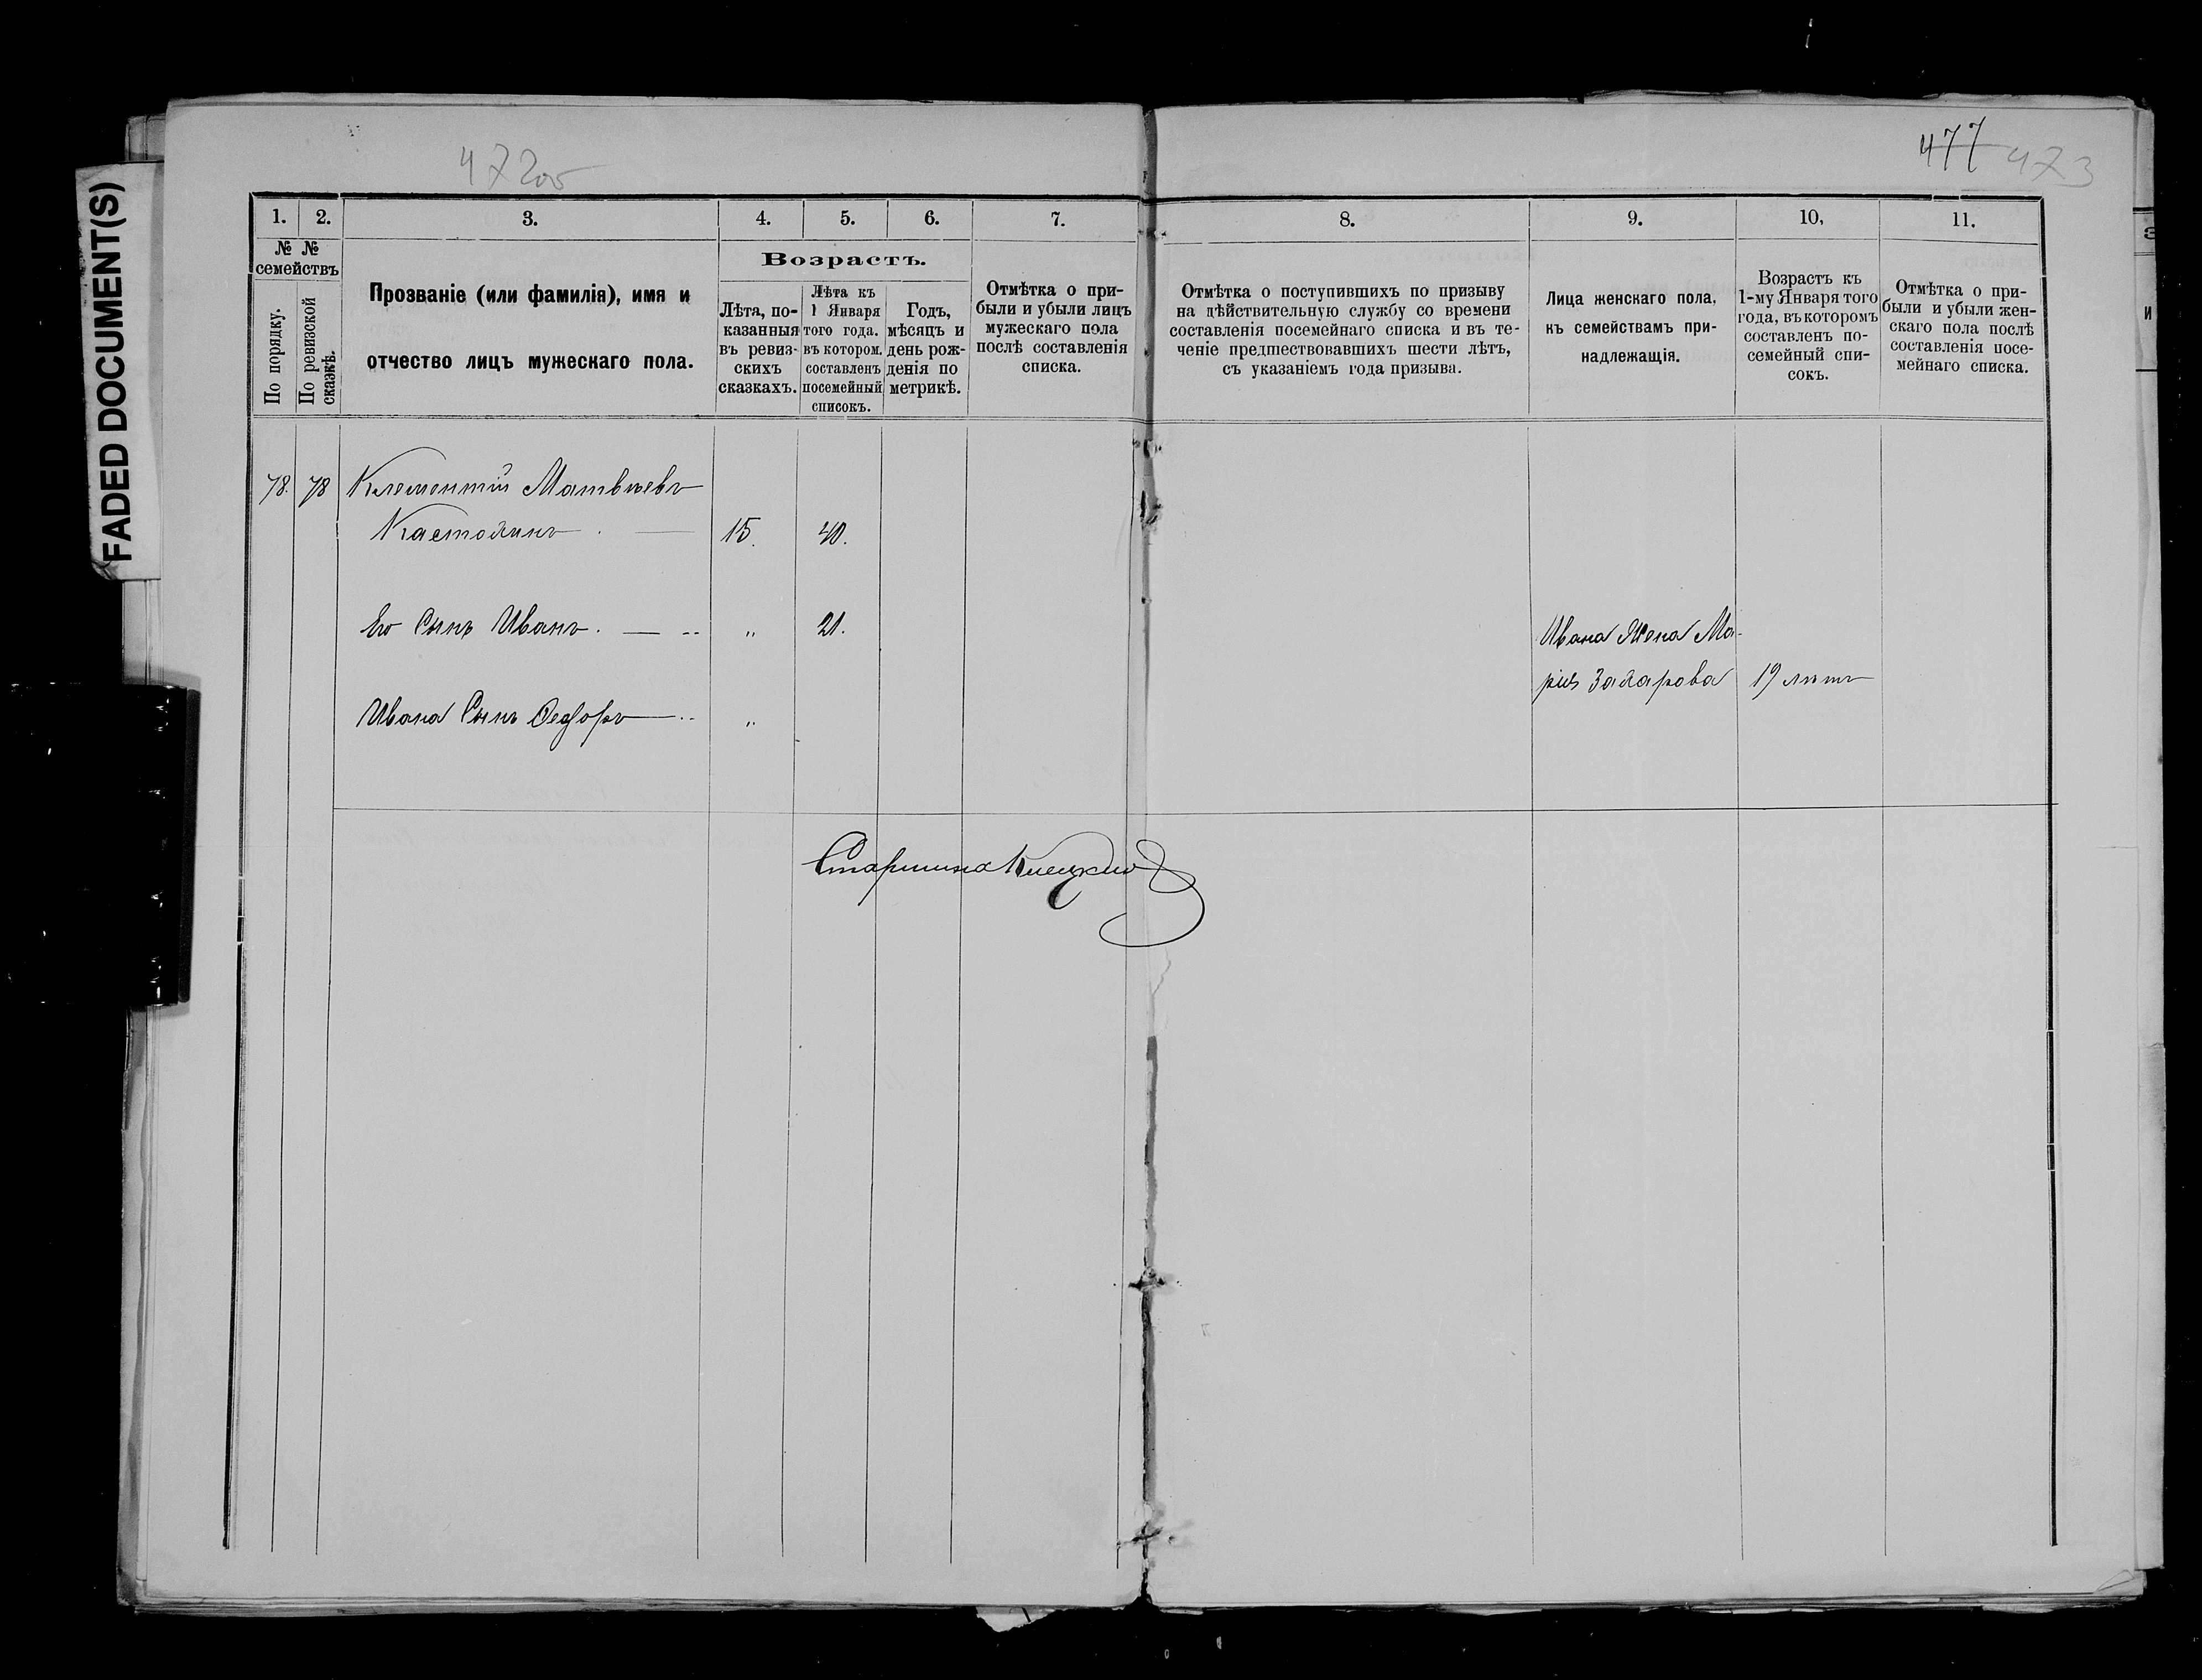 FADED DOCUMENT(S)
472об
477 473
1. 2. 3. 4. 5. 6. 7. 8. 9. 10, 11.
№ №
семействъ
По порядку.
По ревизской
сказкѣ.
Прозваніе (или фамилія), имя и
отчество лицъ мужескаго пола.
Возрастъ.
Лѣта, по-
казанныя
въ ревиз-
скихъ
сказкахъ.
Лѣта къ
1 Января
того года.
въ котором.
составленъ
посемейный
списокъ.
Годъ,
мѣсяцъ и
день рож-
денія по
метрикѣ.
Отмѣтка о при-
были и убыли лицъ
мужескаго пола
послѣ составленія
списка.
Отмѣтка о поступившихъ по призыву
на дѣйствительную службу со времени
составленія посемейнаго списка и въ те-
ченіе предшествовавшихъ шести лѣтъ,
съ указаніемъ года призыва.
Лица женскаго пола,
къ семействамъ при-
надлежащія.
Возрастъ къ
1-му Января того
года, въ которомъ
составленъ по-
семейный спи-
сокъ.
Отмѣтка о при-
были и убыли жен-
скаго пола послѣ
составленія посе-
мейнаго списка.
78. 78 Клементій Матвѣевъ
15. 40.
Его Сынъ Иванъ. — -- " 21.
Ивана Жена Ма-
рія Захарова 19 лѣтъ
Ивана Сынъ Федоръ — -- "
Старшина